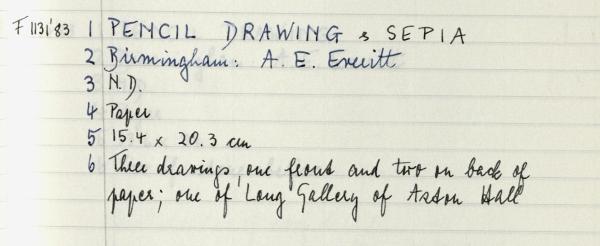 F1131'83 1 PENCIL DRAWING & SEPIA
2 Birmingham: A. E. Everitt
3 N.D.
4 Paper
5 15.4 x 20.3 cm
6 Three drawings, one front and two on back of
paper; one of Long Gallery of Aston Hall